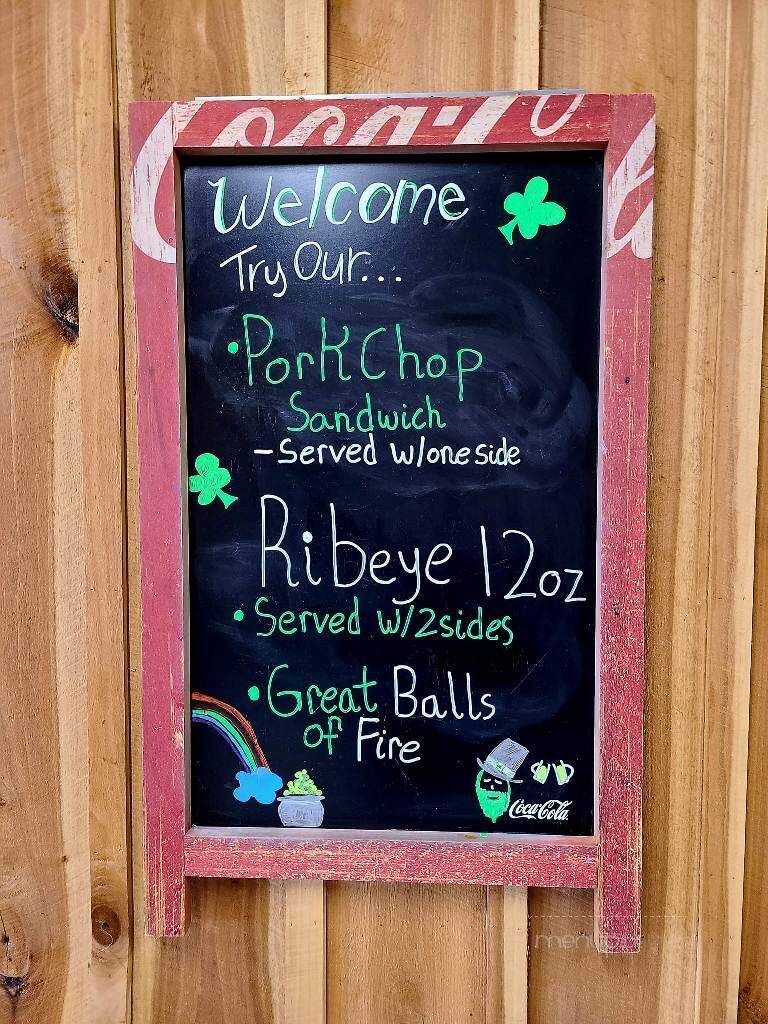 Coca-Cola
Welcome
Try Our...
• Pork Chop
Sandwich
- Served w/one side
Ribeye 12oz
• Served w/2sides
• Great Balls
of Fire
Coca-Cola